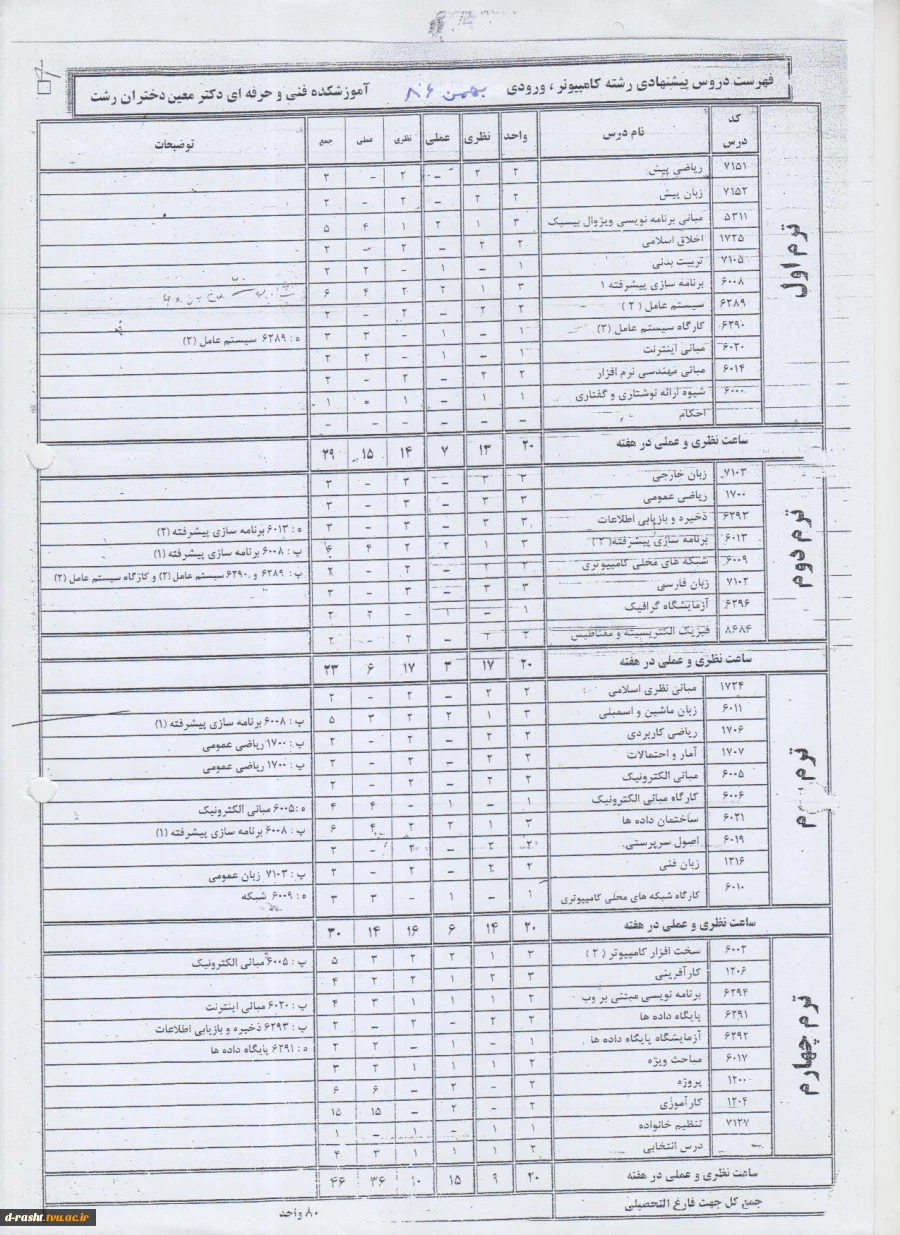 فهرست دروس پیشنهادی رشته کامپیوتر ، ورودی بهمن ۸۰۶ آموزشکده فنی و حرفه ای دکتر معین دختران رشت
کد درس نام درس واحد نظری عملی نظری عملی جمع توضیحات
ترم اول
۷۱۵۱ ریاضی پیش ۲ ۲ – ۲ – ۲
۷۱۵۲ زبان پیش ۲ ۲ – ۲ – ۲
۵۳۱۱ مبانی برنامه نویسی ویژوال بیسیک ۳ ۱ ۲ ۱ ۴ ۵
۱۷۲۵ اخلاق اسلامی ۲ ۲ – ۲ – ۲
۷۱۰۵ تربیت بدنی ۱ – ۱ – ۲ ۲
۶۰۰۸ برنامه سازی پیشرفته ۱ ۳ ۱ ۲ ۲ ۴ ۶
۶۲۸۹ سیستم عامل (۲) ۲ ۲ – ۲ – ۲
۶۲۹۰ کارگاه سیستم عامل (۲) ۱ – ۱ – ۳ ۳ ه : ۶۲۸۹ سیستم عامل (۲)
۶۰۲۰ مبانی اینترنت ۱ – ۱ – ۲ ۲
۶۰۱۴ مبانی مهندسی نرم افزار ۲ ۲ – ۲ – ۲
۶۰۰۰ شیوه ارائه نوشتاری و گفتاری ۱ ۱ – ۱ ۰ ۱
احکام – – – – – –
ساعت نظری و عملی در هفته ۲۰ ۱۳ ۷ ۱۴ ۱۵ ۲۹
ترم دوم
۷۱۰۳ زبان خارجی ۳ ۳ – ۳ – ۳
۱۷۰۰ ریاضی عمومی ۳ ۳ – ۳ – ۳
۶۲۹۳ ذخیره و بازیابی اطلاعات ۳ ۳ – ۳ – ۳ ه : ۶۰۱۳ برنامه سازی پیشرفته (۲)
۶۰۱۳ برنامه سازی پیشرفته (۲) ۳ ۱ ۲ ۲ ۴ ۶ پ : ۶۰۰۸ برنامه سازی پیشرفته (۱)
۶۰۰۹ شبکه های محلی کامپیوتری ۲ ۲ – ۲ – ۲ پ : ۶۲۸۹ و ۶۲۹۰ سیستم عامل (۲) و کارگاه سیستم عامل (۲)
۷۱۰۲ زبان فارسی ۳ ۳ – ۳ – ۳
۶۲۹۶ آزمایشگاه گرافیک ۱ – ۱ – ۲ ۲
۸۶۸۶ فیزیک الکتریسیته و مغناطیس ۲ ۲ – ۲ – ۲
ساعت نظری و عملی در هفته ۲۰ ۱۷ ۳ ۱۷ ۶ ۲۳
۱۷۲۴ مبانی نظری اسلامی ۲ ۲ – ۲ – ۲
۶۰۱۱ زبان ماشین و اسمبلی ۳ ۱ ۲ ۲ ۳ ۵ پ : ۶۰۰۸ برنامه سازی پیشرفته (۱)
۱۷۰۶ ریاضی کاربردی ۲ ۲ – ۲ – ۲ پ : ۱۷۰۰ ریاضی عمومی
۱۷۰۷ آمار و احتمالات ۲ ۲ – ۲ – ۲ پ : ۱۷۰۰ ریاضی عمومی
۶۰۰۵ مبانی الکترونیک ۲ ۲ – ۲ – ۲
۶۰۰۶ کارگاه مبانی الکترونیک ۱ – ۱ – ۴ ۴ ه : ۶۰۰۵ مبانی الکترونیک
۶۰۲۱ ساختمان داده ها ۳ ۱ ۲ ۲ ۴ ۶ پ : ۶۰۰۸ برنامه سازی پیشرفته (۱)
۶۰۱۹ اصول سرپرستی ۲ ۲ – ۲ – ۲
۱۲۱۶ زبان فنی ۲ ۲ – ۲ – ۲ پ : ۷۱۰۳ زبان عمومی
۶۰۱۰ کارگاه شبکه های محلی کامپیوتری ۱ – ۱ – ۳ ۳ ه : ۶۰۰۹ شبکه
ساعت نظری و عملی در هفته ۲۰ ۱۴ ۶ ۱۶ ۱۴ ۳۰
ترم چهارم
۶۰۰۳ سخت افزار کامپیوتر (۲) ۳ ۱ ۲ ۲ ۳ ۵ پ : ۶۰۰۵ مبانی الکترونیک
۱۲۰۶ کارآفرینی ۳ ۲ ۱ ۲ ۲ ۴
۶۲۹۴ برنامه نویسی مبتنی بر وب ۲ ۱ ۱ ۱ ۳ ۴ پ : ۶۰۲۰ مبانی اینترنت
۶۲۹۱ پایگاه داده ها ۲ ۲ – ۲ – ۲ پ : ۶۲۹۳ ذخیره و بازیابی اطلاعات
۶۲۹۲ آزمایشگاه پایگاه داده ها ۱ – ۱ – ۲ ۲ ه : ۶۲۹۱ پایگاه داده ها
۶۰۱۷ مباحث ویژه ۲ ۱ ۱ ۱ ۲ ۳
۱۲۰۰ پروژه ۲ – ۲ – ۶ ۶
۱۲۰۴ کارآموزی ۲ – ۲ – ۱۵ ۱۵
۷۱۲۷ تنظیم خانواده ۱ ۱ – ۱ – ۱
درس انتخابی ۲ ۱ ۱ ۱ ۳ ۴
ساعت نظری و عملی در هفته ۲۰ ۹ ۱۵ ۱۰ ۳۶ ۴۶
جمع کل جهت فارغ التحصیلی ۸۰ واحد
d-rasht.tvu.ac.ir